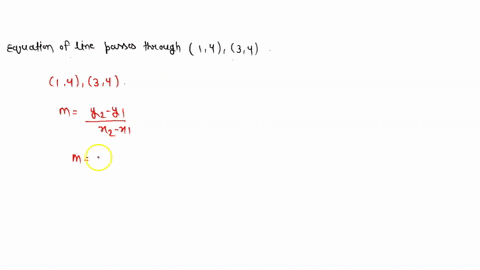 Equation of line passes through (1,4), (3,4).
(1,4), (3,4).
m = y₂-y₁ / x₂-x₁
m =